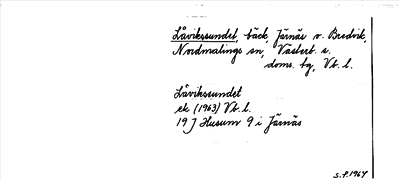 Låvikssundet, bäck Järnäs v. Bredvik,
Nordmalings sn, Västerb. s.
doms. fg, Vb. l.
Låvikssundet
ek (1963) Vb. l.
19 J Husum 9 i Järnäs
S.F. 1964